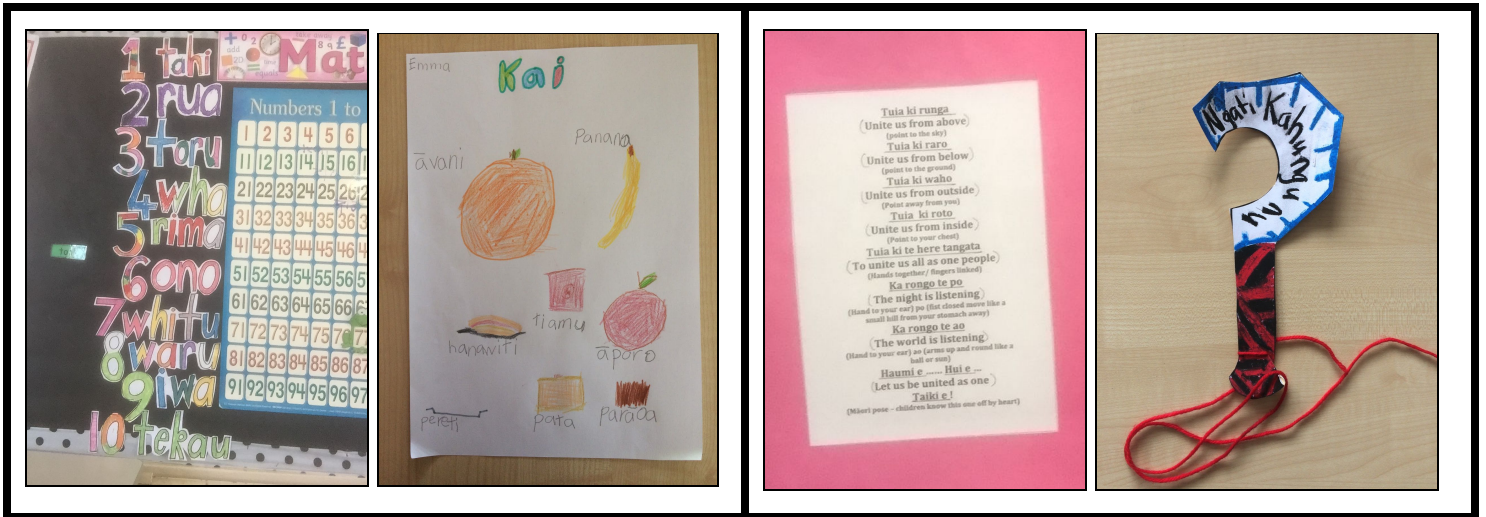 1 tahi
2 rua
3 toru
4 wha
5 rima
6 ono
7 whitu
8 waru
9 iwa
10 tekau
add
equals
Mat
Numbers 1 to
1 2 3 4 5 6
11 12 13 14 15 16
21 22 23 24 25 26 2
31 32 33 34 35 36 3
41 42 43 44 45 46 4
51 52 53 54 55 56 57
61 62 63 64 65 66 67
71 72 73 74 75 76 77
81 82 83 84 85 86 87
91 92 93 94 95 96 97
Emma
Kai
āvani
Panana
tiamu
hanawiti
āporo
pereti
pata
Paraoa
Tuia ki runga
(Unite us from above)
(point to the sky)
Tuia ki raro
(Unite us from below)
(point to the ground)
Tuia ki waho
(Unite us from outside)
(Point away from you)
Tuia ki roto
(Unite us from inside)
(Point to your chest)
Tuia ki te here tangata
(To unite us all as one people)
(Hands together/ fingers linked)
Ka rongo te po
(The night is listening)
(Hand to your ear) po (fist closed move like a
small hill from your stomach away)
Ka rongo te ao
(The world is listening)
(Hand to your ear) ao (arms up and round like a
ball or sun)
Haumi e ...... Hui e ...
(Let us be united as one)
Taiki e !
(Māori pose – children know this one off by heart)
Ngati Kahungunu